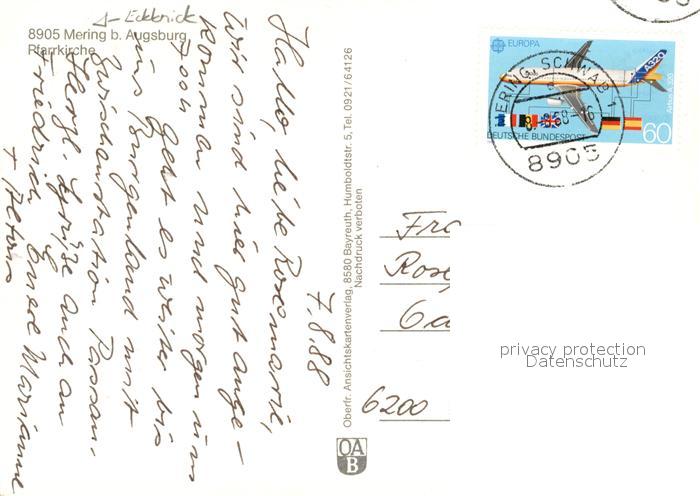 8905 Mering b. Augsburg
Pfarrkirche
7.8.88
Hallo, liebe Rosemarie,
Wir sind hier gut ange-
kommen und morgen um
7 ooh geht es weiter bis
ins Burgenland mit
Zwischenstation Passau.
Herzl. Grüße auch an
Friedrich Eure Marianne
+ Helmut
Oberfr. Ansichtskartenverlag, 8580 Bayreuth, Humboldtstr. 5, Tel. 0921/64126
Nachdruck verboten
OA
B
EUROPA
A320
Airbus A 320
DEUTSCHE BUNDESPOST
60
MERING, SCHWAB 1
8905
Fra
Rose
Ga
6200
privacy protection
Datenschutz